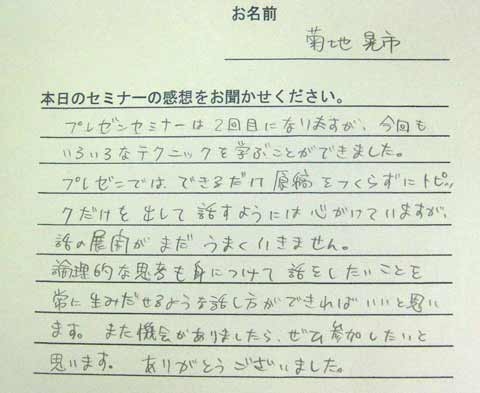 お名前
菊地 晃市
本日のセミナーの感想をお聞かせください。
プレゼンセミナーは2回目になりますが、今回も
いろいろなテクニックを学ぶことができました。
プレゼンでは、できるだけ原稿をつくらずにトピッ
クだけを出して話すようには心がけていますが、
話の展開がまだうまくいきません。
論理的な思考も身につけて話をしたいことを
常に生みだせるような話し方ができればいいと思い
ます。また機会がありましたら、ぜひ参加したいと
思います。ありがとうございました。